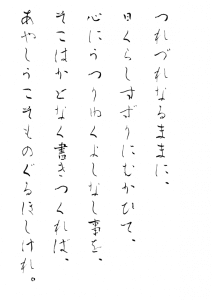 つれづれなるままに、
日くらしすずりにむかひて、
心にうつりゆくよしなし事を、
そこはかとなく書きつくれば、
あやしうこそものぐるほしけれ。